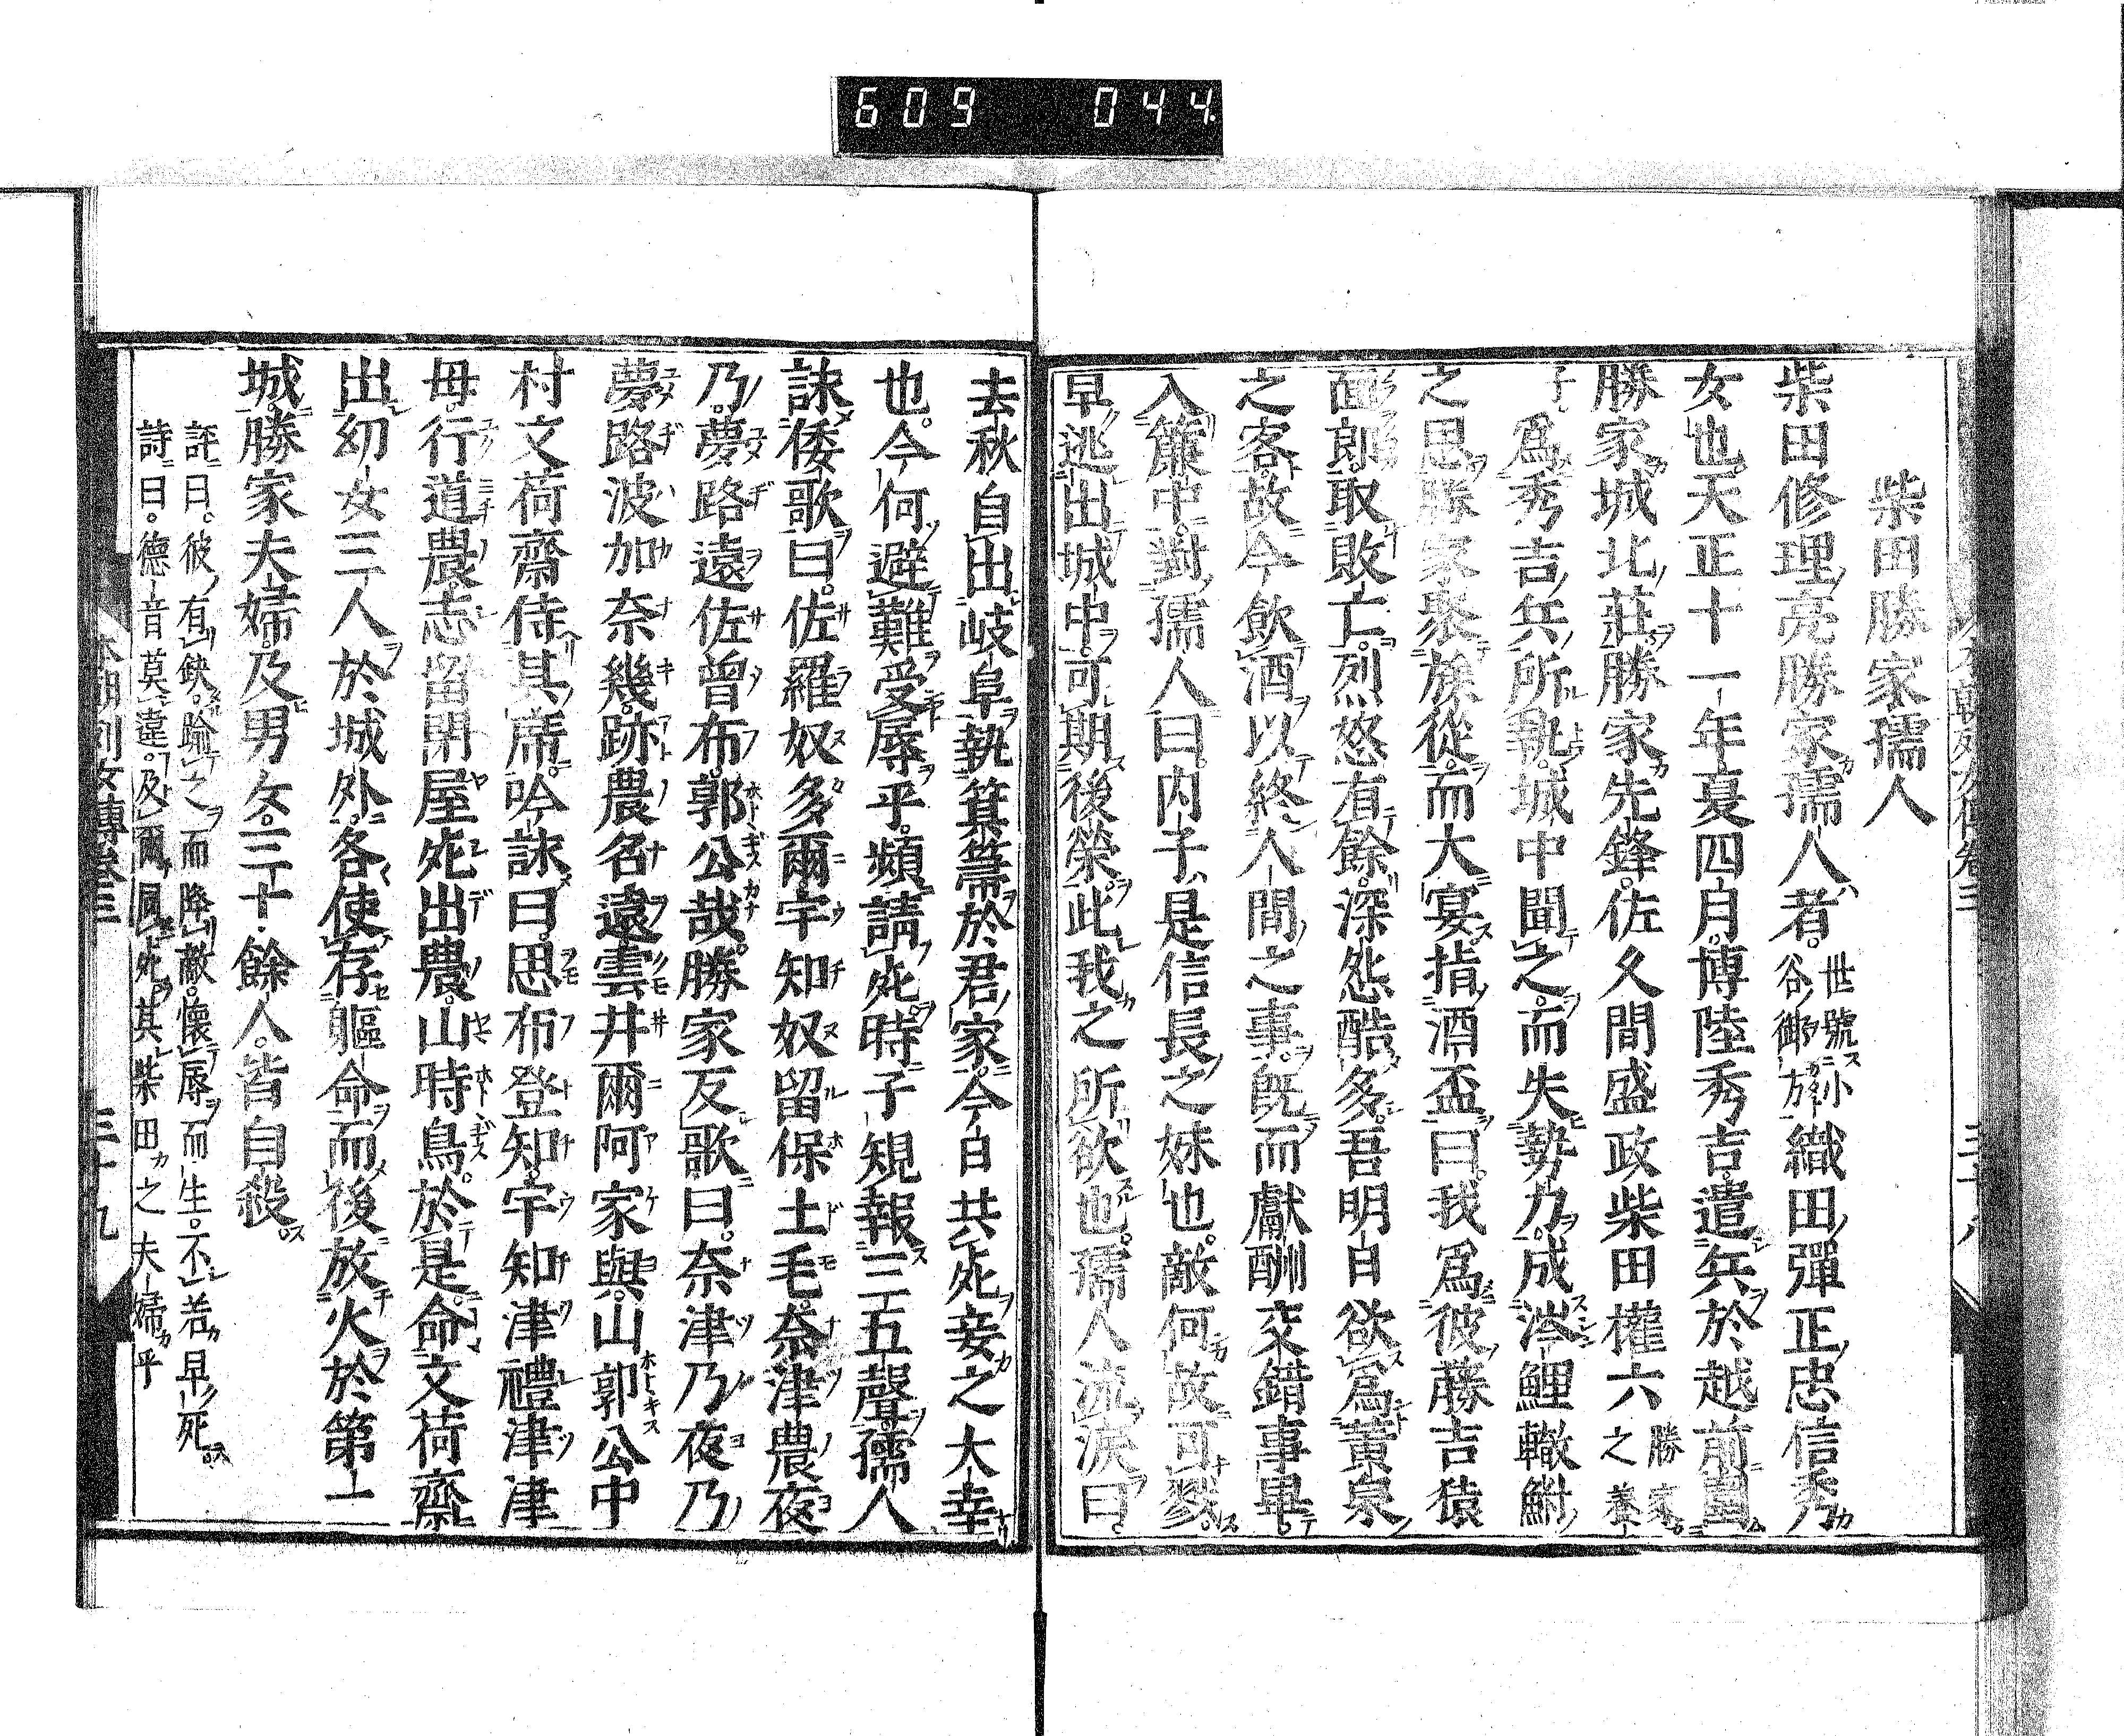 609 044
柴田勝家孺人
柴田修理亮勝家孺人者。世號小谷御方織田彈正忠信秀
女也。天正十一年夏四月。博陸秀吉遣兵於越前圍
勝家城北莊。勝家先鋒。佐久間盛政柴田權六勝家之養
子爲秀吉兵所執。城中聞之。而失勢力。成涔鯉轍鮒
之思。勝家聚族從。而大宴。指酒盃曰。我爲彼藤吉猿
面郎取敗亡。烈怒有餘。深怨酷多。吾明日欲爲黃泉
之客。故今飲酒以終人間之事。既而獻酬交錯事畢。
入簾中。對孺人曰。内子是信長之妹也。敵何故可戮。
早逃出城中。可期後榮。此我之所欲也。孺人流淚曰。
去秋自出岐阜執箕箒於君家。今日共死妾之大幸
也。今何避難受辱乎。頻請死。時子規報三五聲。孺人
詠倭歌曰。佐羅奴多爾宇知奴留保土毛奈津農夜
乃。夢路遠佐曾布。郭公哉。勝家反歌曰。奈津乃夜乃
夢路波加奈幾。跡農名遠雲井爾阿家與。山郭公中
村文荷齋侍其席。吟詠曰。思布登知。宇知津禮津津
毋。行道農志留閇屋死出農。山時鳥。於是命文荷齋
出幼女三人於城外。各使存軀命。而後放火於第上
城。勝家夫婦。及男女。三十餘人。皆自殺。
評曰。彼有缺。踰之而降敵。懷辱而生。不若早死。
詩曰。德音莫違。及爾同死。其柴田之夫婦乎
本朝列女傳卷三 三十八
本朝列女傳卷三 三十九